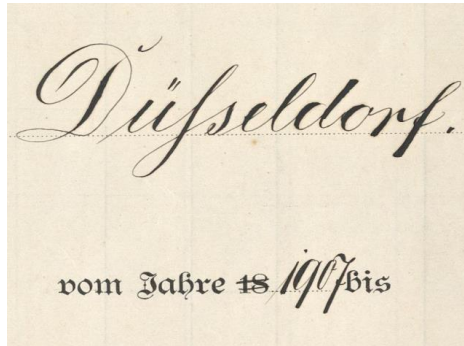 Düsseldorf.
vom Jahre 18 1907 bis